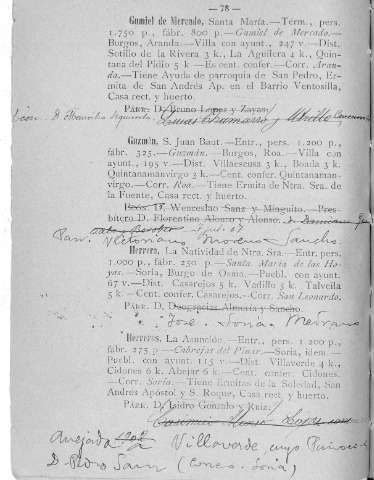 — 78 —
Gumiel de Mercado, Santa María.—Térm., pers.
1.750 p., fábr. 800 p.—Gumiel de Mercado.—
Burgos, Aranda.—Villa con ayunt., 247 v.—Dist.
Sotillo de la Rivera 3 k., La Aguilera 4 k., Quin-
tana del Pidio 5 k.—Es cent. confer.—Corr. Aran-
da.—Tiene Ayuda de parroquia de San Pedro, Er-
mita de San Andrés Ap. en el Barrio Ventosilla,
Casa rect. y huerto.
Párr. D. Bruno Lopez y Zayas.
Guzmán, S. Juan Baut.—Entr., pers. 1.200 p.,
fábr. 325.—Guzmán.—Burgos, Roa.—Villa con
ayunt., 195 v.—Dist. Villaescusa 3 k., Boada 3 k.
Quintanamanvirgo 3 k.—Cent. confer. Quintanaman-
virgo.—Corr. Roa.—Tiene Ermita de Ntra. Sra. de
la Fuente, Casa rect. y huerto.
D. Wenceslao Sanz y Minguito.—Pres-
bítero D. Florentino Alonso y Alonso.
Victoriano Moreno Sancho.
Herrera, La Natividad de Ntra. Sra.—Entr., pers.
1.000 p., fábr. 250 p.—Santa María de las Ho-
yas.—Soria, Burgo de Osma.—Puebl. con ayunt.
67 v.—Dist. Casarejos 5 k., Vadillo 5 k., Talveila
5 k.—Cent. confer. Casarejos.—Corr. San Leonardo.
Párr. D. Deogracias Almería y Sancho.
José Soria
Herreros, La Asunción.—Entr., pers. 1 200 p.,
fábr. 275 p—Cabrejas del Pinar.—Soria, idem.—
Puebl. con ayunt. 115 v.—Dist. Villaverde 4 k.,
Cidones 6 k. Abejar 6 k.—Cent. confer. Cidones.
—Corr. Soria.—Tiene Ermitas de la Soledad, San
Andrés Apóstol y S. Roque, Casa rect. y huerto.
Párr. D. Isidro Gonzalo y Ruiz.
Anejada Villaverde cuyo Párroco
D. Pedro Sanz (Conc. Soria)